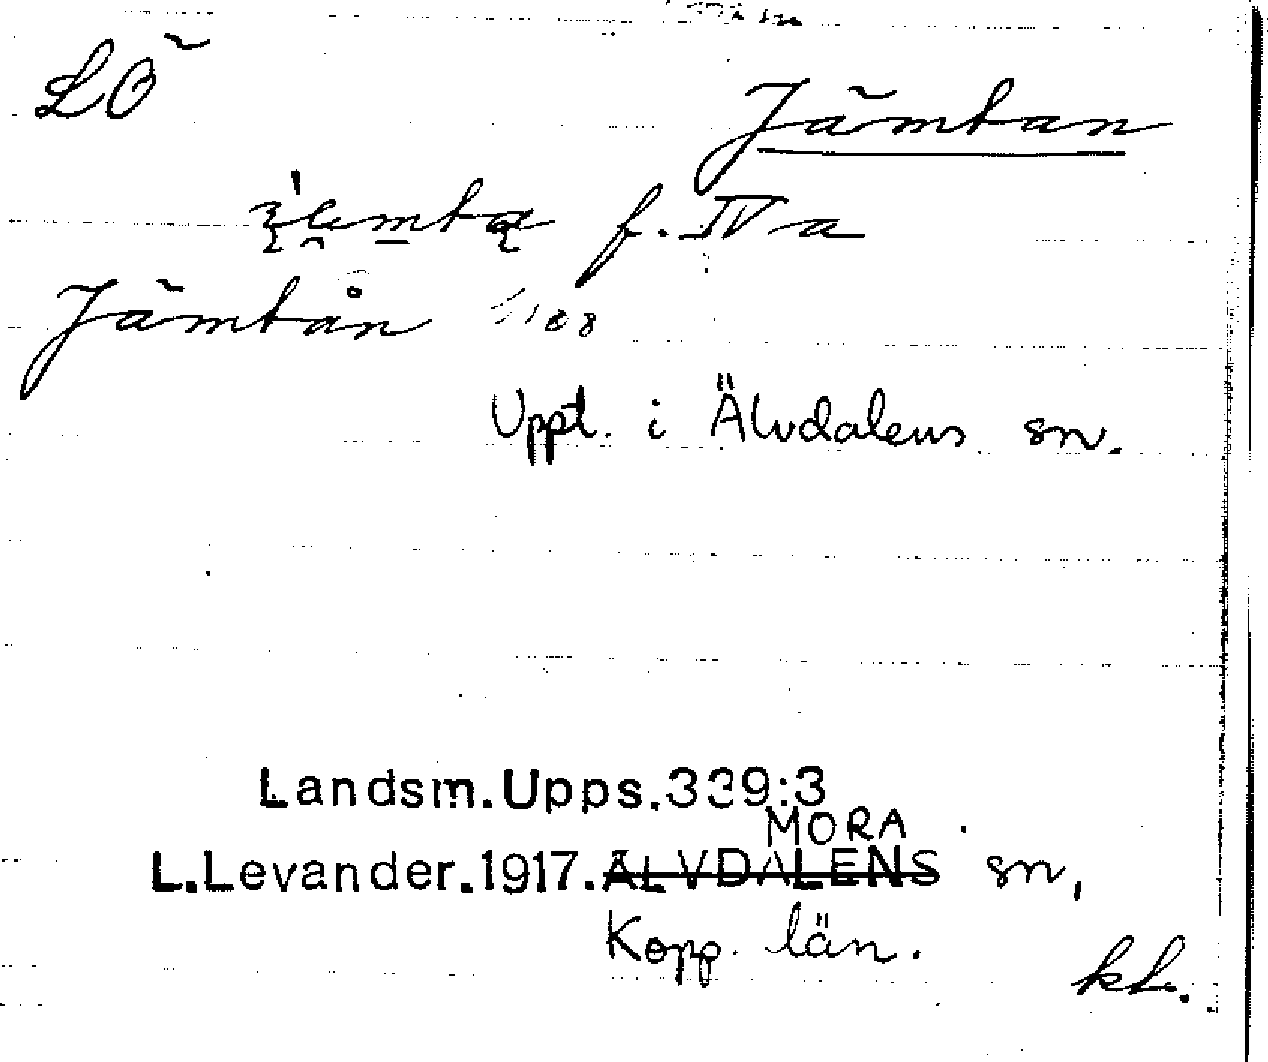 LÖ
Jämtan
f. IV a
Jämtån 1108
Uppt. i Älvdalens sn.
Landsm.Upps.339:3
MORA
L.Levander.1917.ÄLVDALENS sn,
Kopp. län.